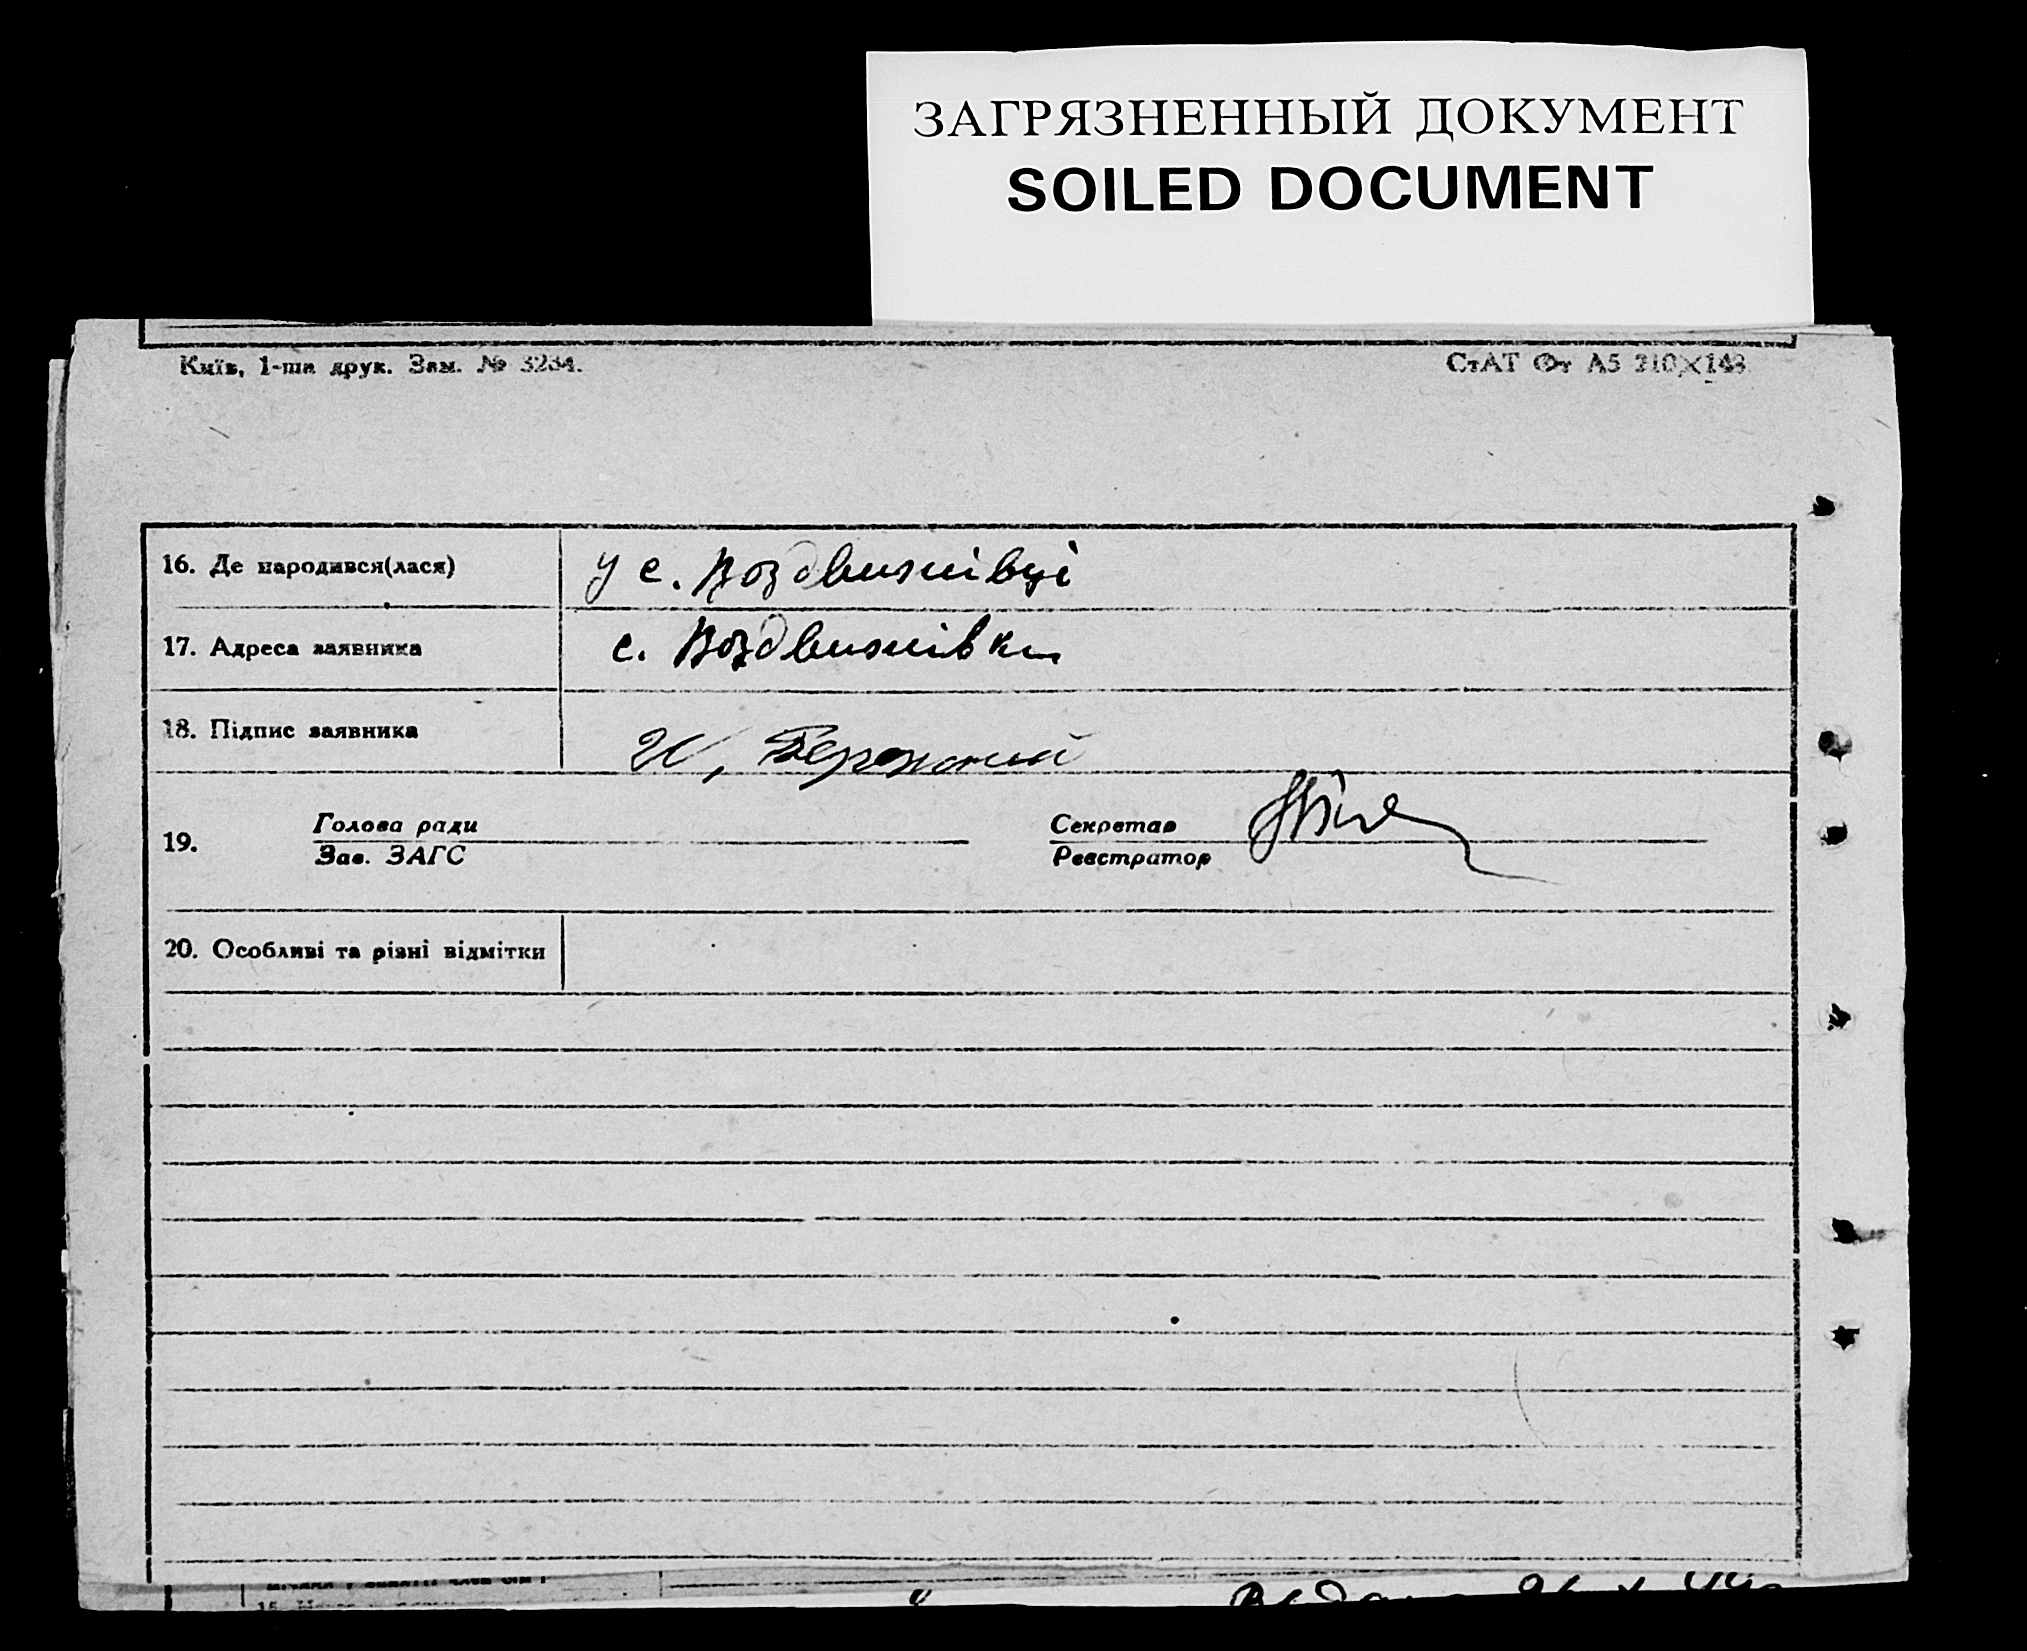 ЗАГРЯЗНЕННЫЙ ДОКУМЕНТ
SOILED DOCUMENT
Київ, 1-ша друк. Зам. № 3234.
СтАТ Фт А5 210×148
16. Де народився(лася) у с. Воздвижівці
17. Адреса заявника с. Воздвижівка
18. Підпис заявника
19. Голова ради Секретар
Зав. ЗАГС Реєстратор
20. Особливі та різні відмітки